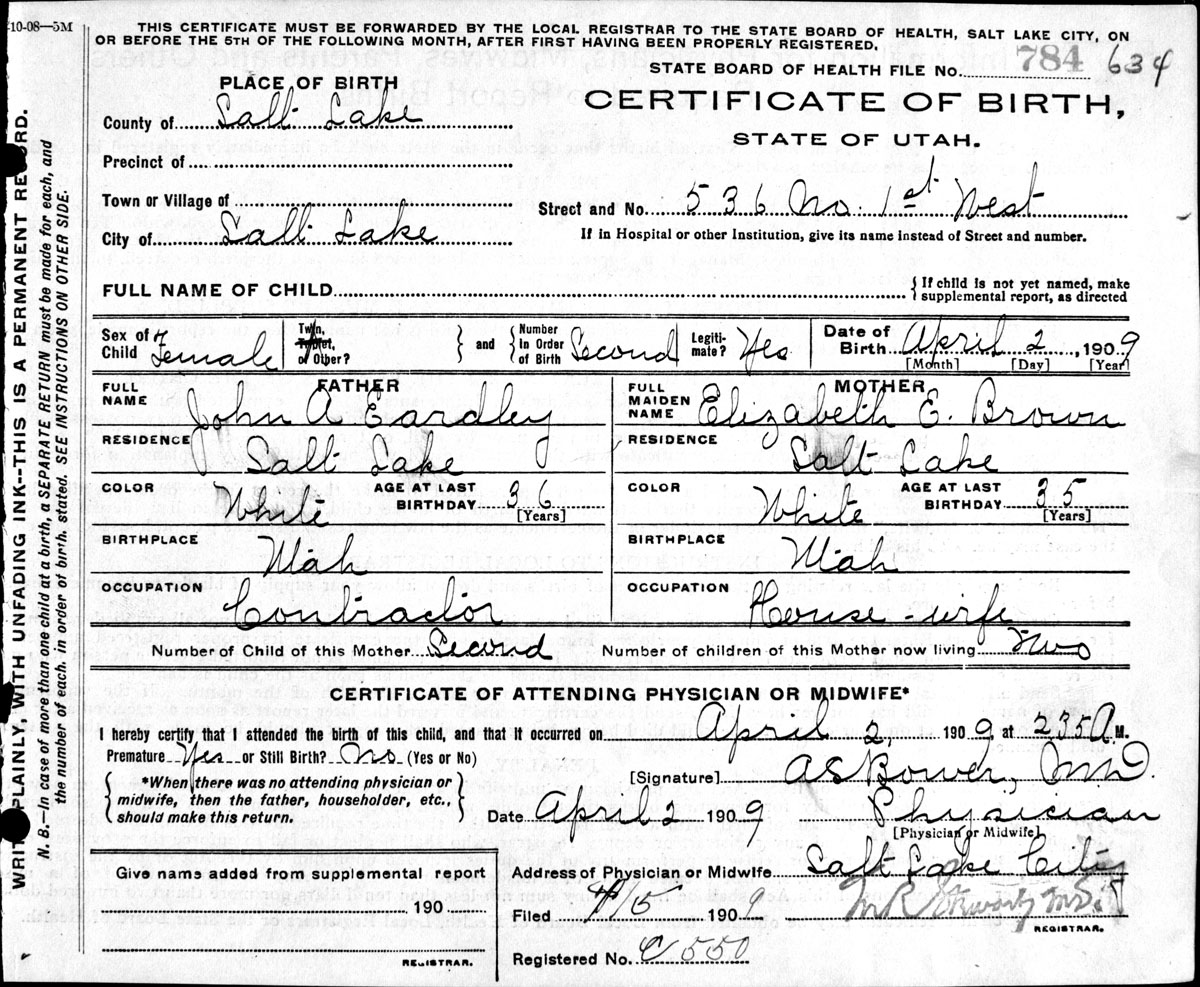 10-08—5M
THIS CERTIFICATE MUST BE FORWARDED BY THE LOCAL REGISTRAR TO THE STATE BOARD OF HEALTH, SALT LAKE CITY, ON
OR BEFORE THE 5TH OF THE FOLLOWING MONTH, AFTER FIRST HAVING BEEN PROPERLY REGISTERED.
STATE BOARD OF HEALTH FILE No. 784 634
PLACE OF BIRTH
CERTIFICATE OF BIRTH,
STATE OF UTAH.
County of Salt Lake
Precinct of
Town or Village of
City of Salt Lake
Street and No. 536 No. 1st West
If in Hospital or other Institution, give its name instead of Street and number.
FULL NAME OF CHILD
If child is not yet named, make
supplemental report, as directed
Sex of Child Female
Twin, Triplet, or Other?
and
Number In Order of Birth Second
Legiti-mate? Yes
Date of Birth April 2, 1909
[Month] [Day] [Year]
FATHER
FULL NAME John A Eardley
RESIDENCE Salt Lake
COLOR White
AGE AT LAST BIRTHDAY 36 [Years]
BIRTHPLACE Utah
OCCUPATION Contractor
MOTHER
FULL MAIDEN NAME Elizabeth E. Brown
RESIDENCE Salt Lake
COLOR White
AGE AT LAST BIRTHDAY 35 [Years]
BIRTHPLACE Utah
OCCUPATION House-wife
Number of Child of this Mother Second
Number of children of this Mother now living Two
CERTIFICATE OF ATTENDING PHYSICIAN OR MIDWIFE*
I hereby certify that I attended the birth of this child, and that it occurred on April 2, 1909, at 235 A M.
Premature Yes or Still Birth? No (Yes or No)
*When there was no attending physician or
midwife, then the father, householder, etc.,
should make this return.
[Signature] A S Bower, M D.
Date April 2 1909 Physician
[Physician or Midwife]
Address of Physician or Midwife Salt Lake City
Filed 4/5 1909
REGISTRAR.
Registered No. 550
Give name added from supplemental report
190
REGISTRAR.
WRITE PLAINLY, WITH UNFADING INK--THIS IS A PERMANENT RECORD.
N. B.—In case of more than one child at a birth, a SEPARATE RETURN must be made for each, and
the number of each, in order of birth, stated. SEE INSTRUCTIONS ON OTHER SIDE.